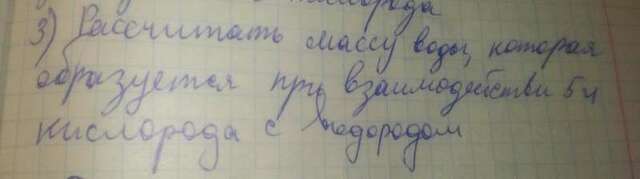 кислорода
3) Рассчитать массу воды, которая
образуется при взаимодействи 5 г
кислорода с водородом